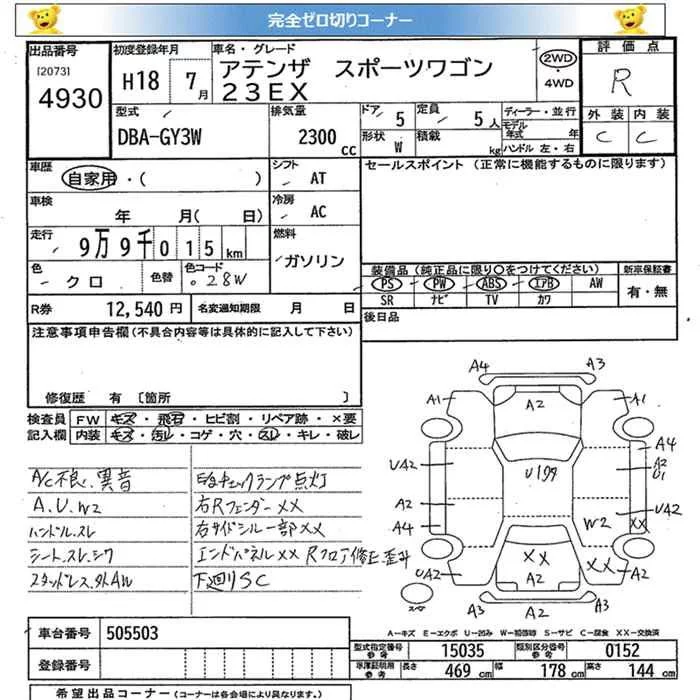 完全ゼロ切りコーナー
出品番号
[2073]
4930
初度登録年月
H18 7月
車名・グレード
アテンザ スポーツワゴン
23EX
2WD
・
4WD
評価点
R
外装 内装
C C
型式
DBA-GY3W
排気量
2300 cc
ドア 5
定員 5人
形状 W
積載 kg
ディーラー・並行
モデル年式 年
ハンドル 左・右
車歴
自家用・( )
シフト
AT
セールスポイント (正常に機能するものに限ります)
車検
年 月( 日)
冷房
AC
走行
9万9千015km
燃料
ガソリン
色
クロ
色替
色コード
28W
装備品(純正品に限り○をつけてください)
新車保証書
PS PW ABS エアB AW
SR ナビ TV カワ
有・無
R券 12,540円
名変通知期限 月 日
後日品
注意事項申告欄(不具合内容等は具体的に記入して下さい)
修復歴 有 [箇所 ]
検査員記入欄
FW キズ・飛石・ヒビ割・リペア跡・×要
内装 キズ・汚レ・コゲ・穴・スレ・キレ・破レ
A/C不良、異音
A.U.W2
ハンドル.スレ
シート.スレ.シワ
スタッドレス.外AW
チェックランプ点灯
右Rフェンダー××
右サイドシル一部××
エンドパネル×× Rフロア修正歪み
下廻りSC
A4 A3
A2
A1 A1
A4
UA2 U199 A2
U1
A2 UA2
A4 W2 XX
XX XX
UA2 A2 A2
A3 A2 A3
A-キズ E-エクボ U-凹み W-補修跡 S-サビ C-腐食 XX-交換済
車台番号 505503
登録番号
型式指定番号
参考
15035
類別区分番号
参考
0152
車庫証明用
参考
長さ 469cm 幅 178cm 高さ 144cm
希望出品コーナー(コーナーは各会場により異なります。)